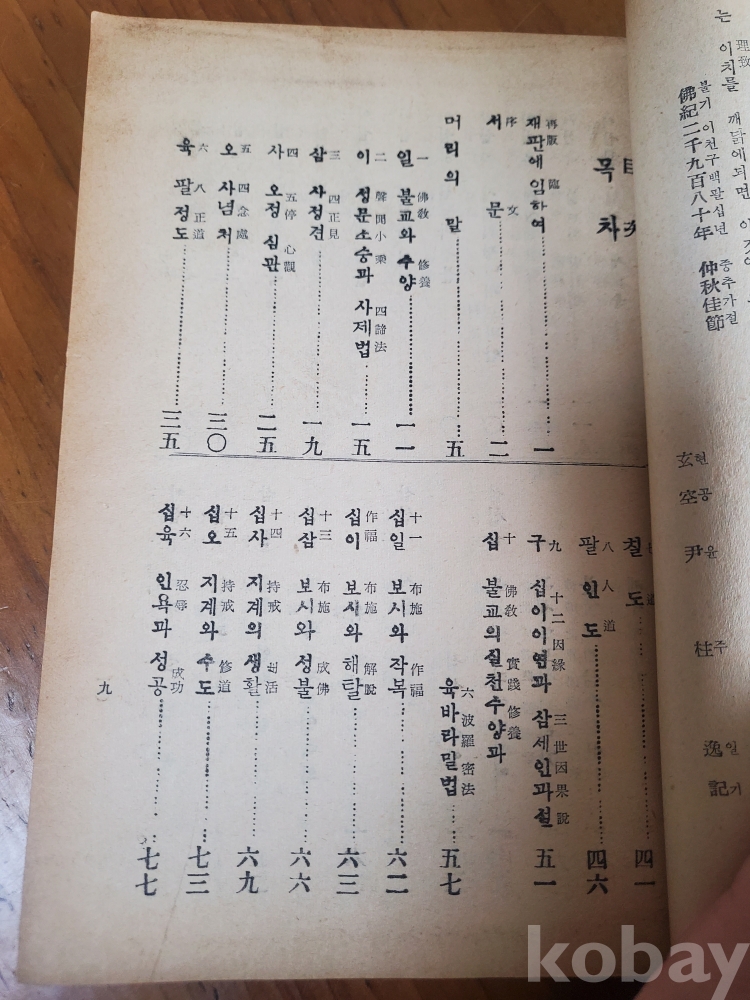 는 이치를 깨닭에되면
理致
佛紀二千九百八十年 仲秋佳節
불기 이천구백팔십년 중추가절
玄空 尹柱逸 記
현공 윤주일 기
目次
목차
再版 臨
재판에 임하여 一
序 文
서 문 二
머리의 말 五
一 佛敎 修養
일 불교와 수양 一一
二 聲聞小乘 四諦法
이 성문소승과 사제법 一五
三 四正見
삼 사정견 一九
四 五停心觀
사 오정심관 二五
五 四念處
오 사념처 三〇
六 八正道
육 팔정도 三五
칠 도 四一
八 人道
팔 인도 四六
九 十二因緣 三世因果說
구 십이인연과 삼세인과설 五一
十 佛敎 實踐修養
십 불교의 실천수양과
六波羅密法
육바라밀법 五七
十一 布施 作福
십일 보시와 작복 六二
作福 布施 解脫
십이 보시와 해탈 六三
十三 布施 成佛
십삼 보시와 성불 六六
十四 持戒 活
십사 지계의 생활 六九
十五 持戒 修道
십오 지계와 수도 七三
十六 忍辱 成功
십육 인욕과 성공 七七
九
kobay